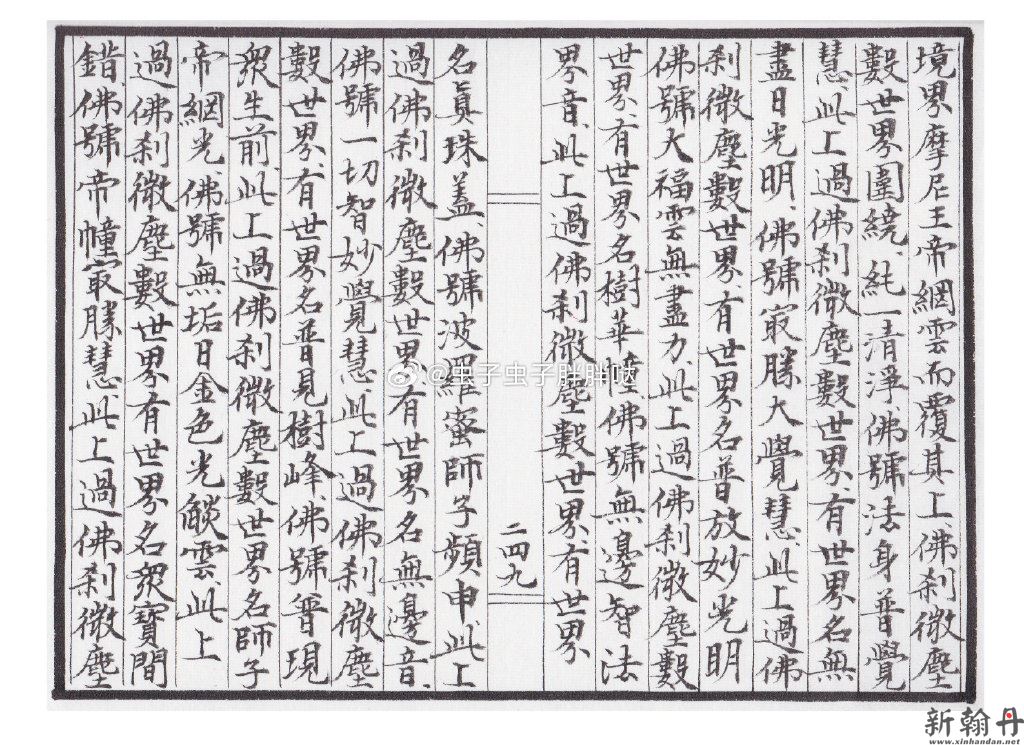 境界摩尼王帝網雲而覆其上、佛刹微塵
數世界圍繞、純一清淨、佛號法身普覺
慧、此上過佛刹微塵數世界、有世界名無
盡日光明、佛號冣勝大覺慧、此上過佛
刹微塵數世界、有世界名普放妙光明
佛號大福雲無盡力、此上過佛刹微塵數
世界、有世界名樹華幢、佛號無邊智法
界音、此上過佛刹微塵數世界、有世界
二四九
名真珠盖、佛號波羅蜜師子頻申、此上
過佛刹微塵數世界、有世界名無邊音、
佛號一切智妙覺慧、此上過佛刹微塵
數世界、有世界名普見樹峰、佛號普現
衆生前、此上過佛刹微塵數世界名師子
帝網光、佛號無垢日金色光燄雲、此上
過佛刹微塵數世界有世界名衆寶間
錯佛號帝幢冣勝慧、此上過佛刹微塵
@虫子虫子胖胖哒
新翰丹
www.xinhandan.net